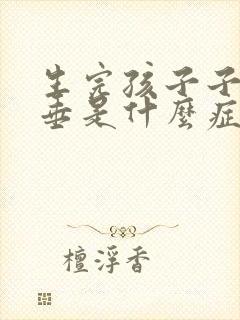 生完孩子子
垂是什麼症
檀浮香